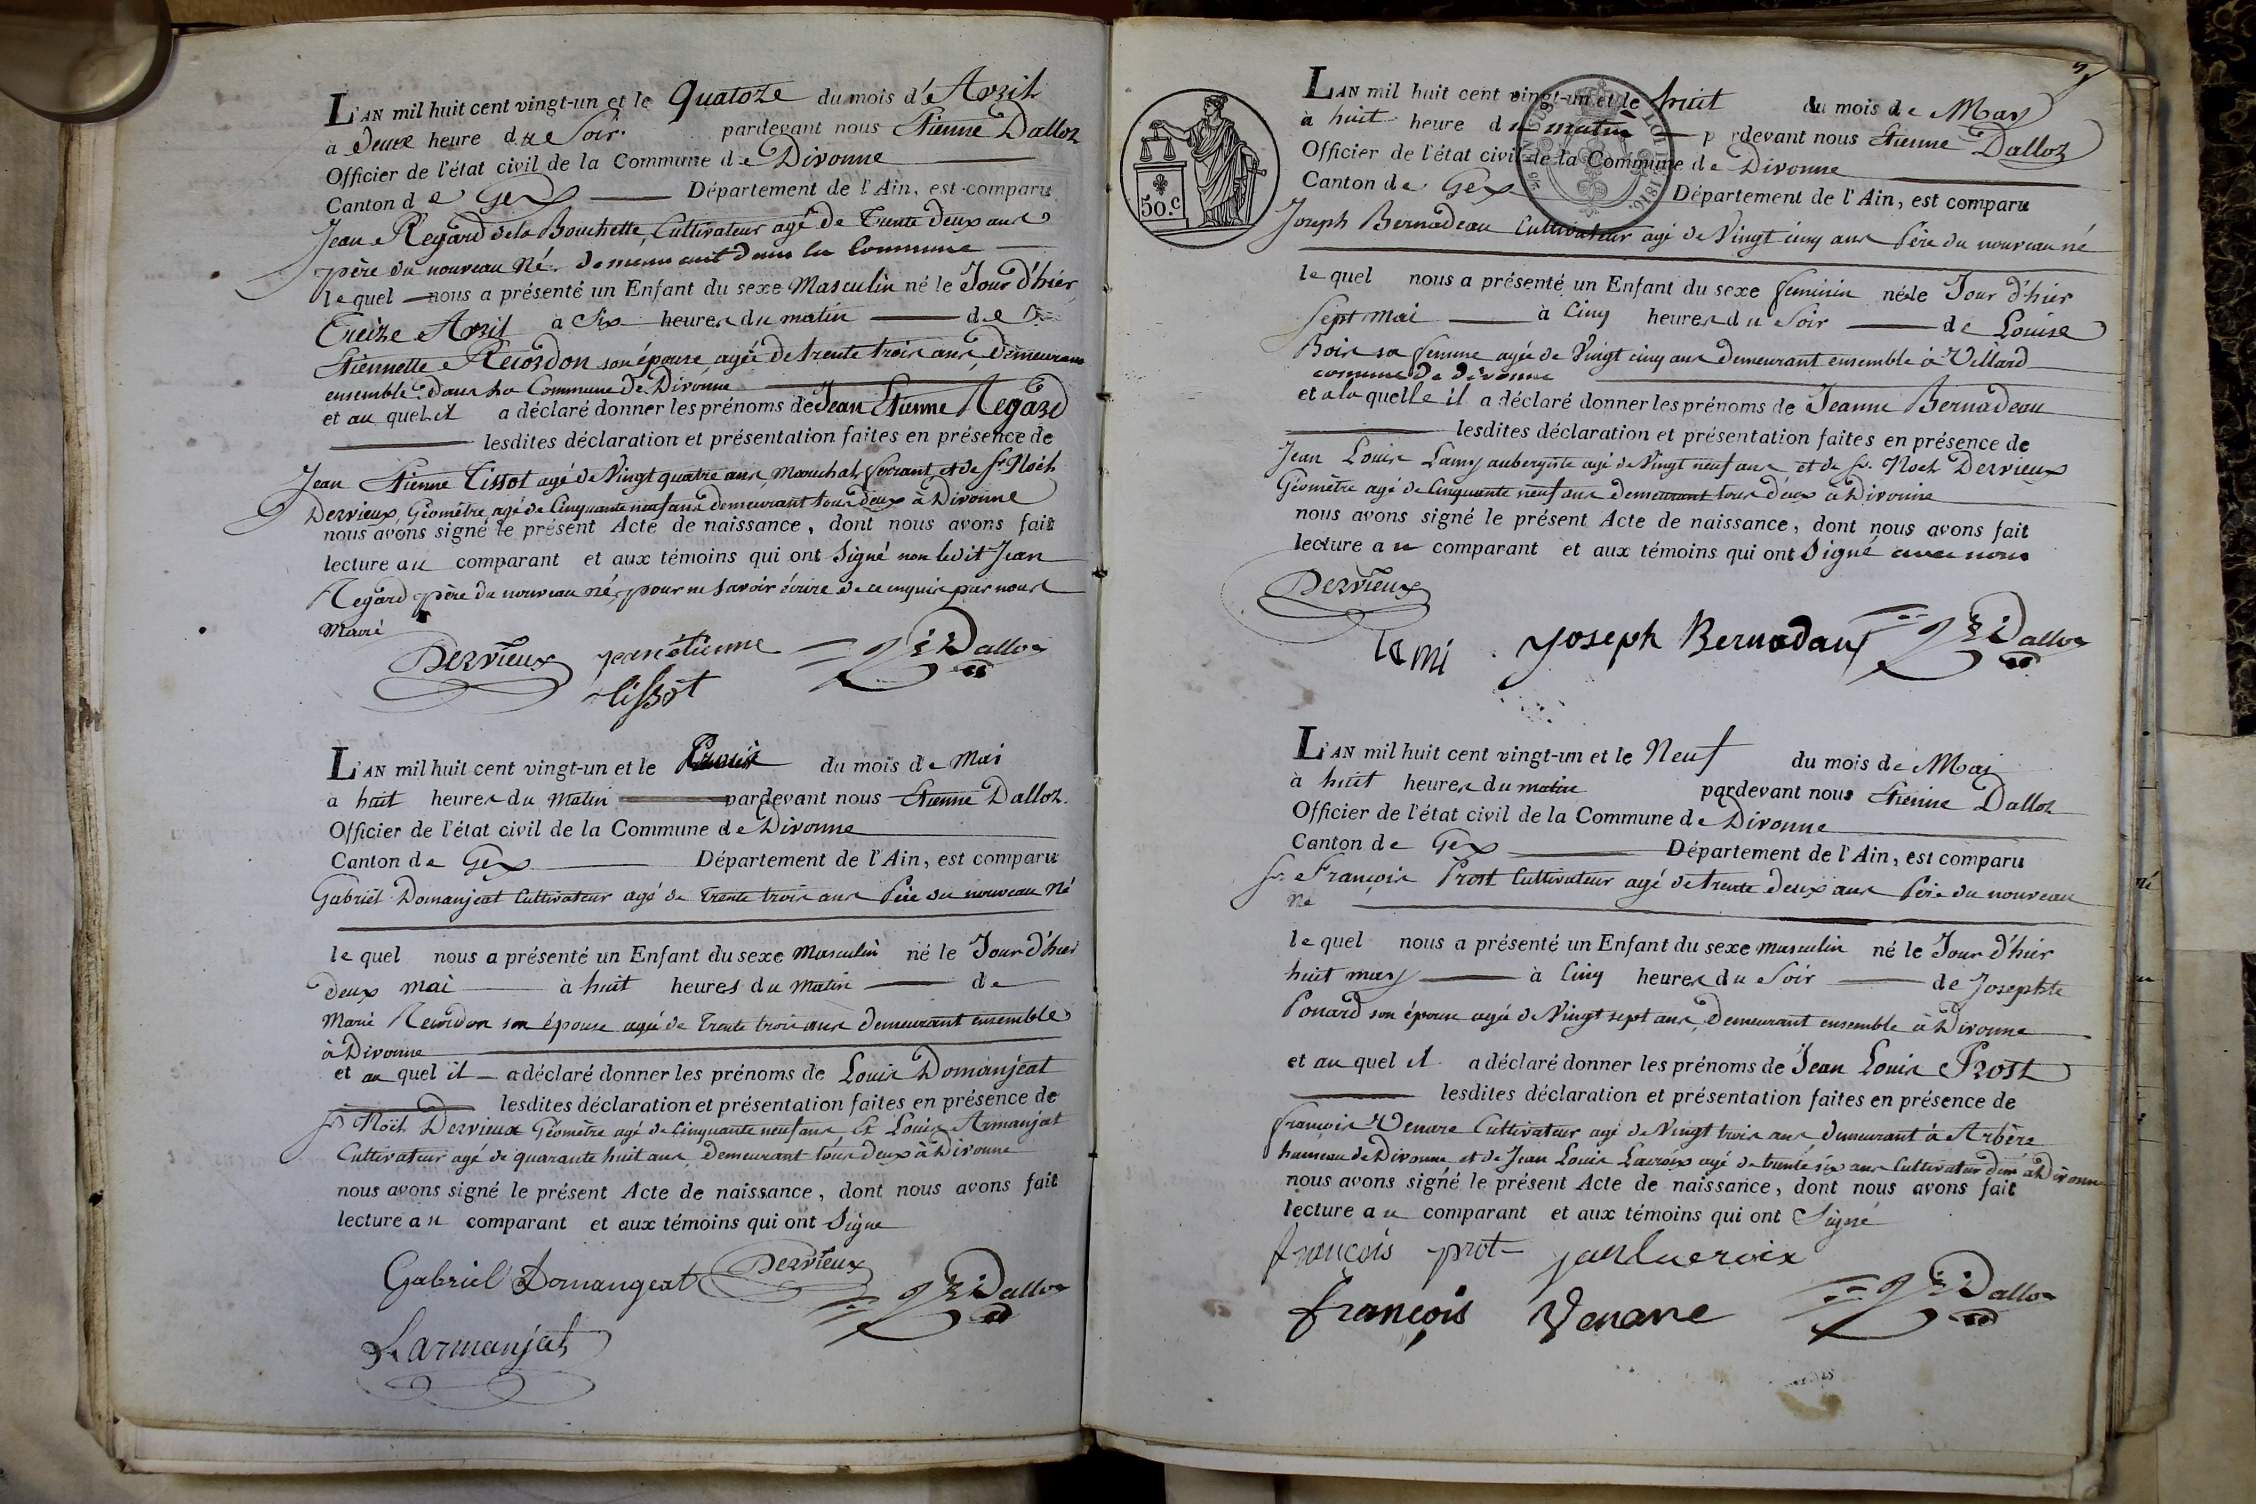 L'AN mil huit cent vingt-un et le Quatoze du mois d'e Avril
a deux heure due Soir. pardevant nous Etienne Dalloz
Officier de l'état civil de la Commune de Divonne
Canton de Gex Département de l'Ain, est comparu
Jean Regard dela Bouchette, Cultivateur agé de Trente deux ans
père du nouveau Né. demeurant dans la Commune
le quel nous a présenté un Enfant du sexe Masculin né le Jour d'hier
Treize Avril à Six heures du matin de
Etiennette Recordon son épouse agée de trente trois ans, demeurant
ensemble dans la Commune de Divonne
et au quel il a déclaré donner les prénoms de Jean Etienne Regard
lesdites déclaration et présentation faites en présence de
Jean Etienne Tissot agé de Vingt quatre ans, Marechal ferrant, et de Sr. Noël
Dervieux, Géomètre, agé de Cinquante neuf ans demeurant tous deux à Divonne
nous avons signé le présent Acte de naissance, dont nous avons fait
lecture au comparant et aux témoins qui ont Signé non ledit Jean
Regard père du nouveau né, pour ne savoir écrire de ce enquis par nous
Maire
Dervieux jean étienne Dalloz
tissot
L'AN mil huit cent vingt-un et le du mois de Mai
a huit heures du Matin pardevant nous Etienne Dalloz.
Officier de l'état civil de la Commune de Divonne
Canton de Gex Département de l'Ain, est comparu
Gabriël Domanjeat Cultivateur agé de Trente trois ans Père du nouveau Né
le quel nous a présenté un Enfant du sexe Masculin né le Jour d'hier
deux mai à huit heures du Matin de
Marie Recordon son épouse agée de Trente trois ans demeurant ensemble
à Divonne
et au quel il a déclaré donner les prénoms de Louis Domanjeat
lesdites déclaration et présentation faites en présence de
Sr. Noël Dervieux Géomètre agé de Cinquante neuf ans Et Louis Armanjat
Cultivateur agé de quarante huit ans, Demeurant tous deux à Divonne
nous avons signé le présent Acte de naissance, dont nous avons fait
lecture au comparant et aux témoins qui ont Signé
Gabriel Domangeat Dervieux Dalloz
Larmanjat
50.c
LOI DE 1816.
L'AN mil huit cent vingt-un et le huit du mois de May
a huit heure du matin pardevant nous Etienne Dalloz
Officier de l'état civil de la Commune de Divonne
Canton de Gex Département de l'Ain, est comparu
Joseph Bernadeau Cultivateur agé de Vingt cinq ans Père du nouveau né
le quel nous a présenté un Enfant du sexe feminin né le Jour d'hier
Sept mai à Cinq heures du Soir de Louise
Bois sa femme agée de Vingt cinq ans demeurant ensemble à Villard
commune de divonne
et a la quelle il a déclaré donner les prénoms de Jeanne Bernadeau
lesdites déclaration et présentation faites en présence de
Jean Louis Lamy aubergiste agé de Vingt neuf ans et de Sr. Noël Dervieux
Géomètre agé de Cinquante neuf ans demeurant tous deux à Divonne
nous avons signé le présent Acte de naissance, dont nous avons fait
lecture au comparant et aux témoins qui ont Signé avec nous
Dervieux
lami Joseph Bernadau Dalloz
L'AN mil huit cent vingt-un et le Neuf du mois de Mai
à huit heures du matin pardevant nous Etienne Dalloz
Officier de l'état civil de la Commune de Divonne
Canton de Gex Département de l'Ain, est comparu
Sr. François Prost Cultivateur agé de trente deux ans Père du nouveau
Né
le quel nous a présenté un Enfant du sexe masculin né le Jour d'hier
huit may à Cinq heures du Soir de Josephte
Ponard son épouse agée de Vingt sept ans, Demeurant ensemble à Divonne
et au quel il a déclaré donner les prénoms de Jean Louis Prost
lesdites déclaration et présentation faites en présence de
François Venare Cultivateur agé de Vingt trois ans, demeurant à Arbère
hameau de Divonne et de Jean Louis Lacroix agé de trente six ans Cultivateur dem. à Divonne
nous avons signé le présent Acte de naissance, dont nous avons fait
lecture au comparant et aux témoins qui ont Signé
françois prot jan lacroix
françois Venare Dalloz